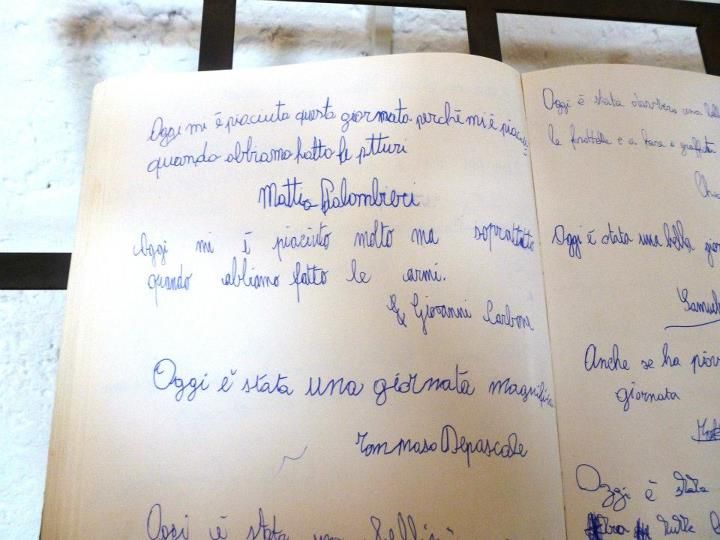 Oggi mi è piaciuta questa giornata perchè mi è
quando abbiamo fatto le pitturi
Matteo Palombieri
Oggi mi è piaciuto molto ma soprattutto
quando abbiamo fatto le armi.
Giovanni Carbone
Oggi è stata una giornata magnifica
Tommaso Depascale
Oggi è stata una
Oggi è stata davvero una
le frottole e a fare i graffiti
Oggi è stata una bella
Samuele
Anche se ha
giornata
Oggi è stata
tutte